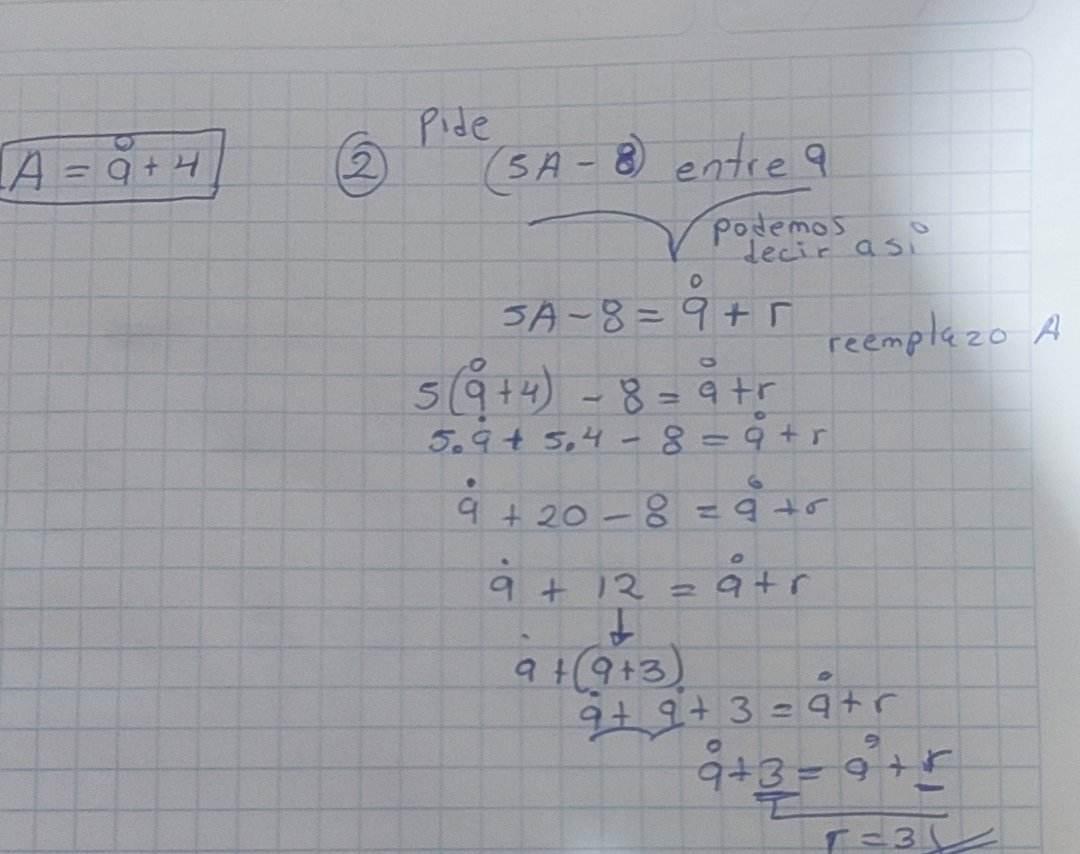 A = 9̊ + 4
② Pide
(5A - 8) entre 9
podemos
decir así
5A - 8 = 9̊ + r
reemplazo A
5(9̊ + 4) - 8 = 9̊ + r
5.9̊ + 5.4 - 8 = 9̊ + r
9̇ + 20 - 8 = 9̊ + r
9̇ + 12 = 9̊ + r
↓
9̇ + (9+3)
9̇ + 9̇ + 3 = 9̊ + r
9̊ + 3 = 9̊ + r
r = 3